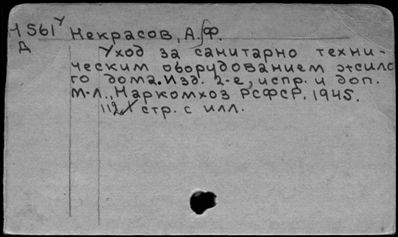 1561 Некрасов, А.Ф.
Д
Уход за санитарно техни-
ческим оборудованием жило-
го дома. Изд. 2-е, испр. и доп.
М-Л., Наркомхоз РСФСР. 1945.
112 стр. с илл.